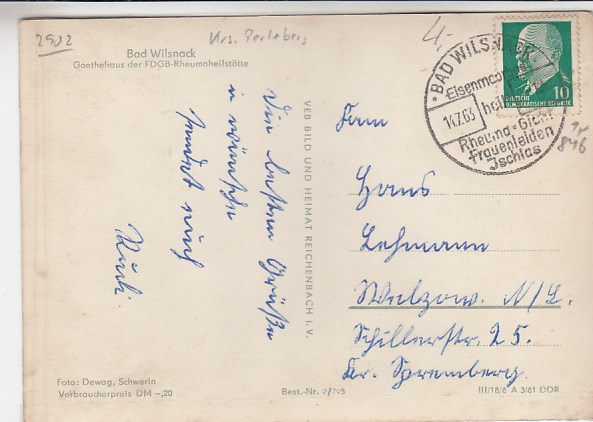 2902
Krs. Perleberg
4,-
Bad Wilsnack
Goethehaus der FDGB-Rheumaheilstätte
Die besten Grüße
u wünsche
sendet euch
Rudi.
Foto: Dewag, Schwerin
Verbraucherpreis DM -,20
VEB BILD UND HEIMAT REICHENBACH i. V.
Best.-Nr. 9/795
BAD WILSNACK
Eisenmoor
heilt
14.7.63
Rheuma-Gicht
Frauenleiden
Jschias
DEUTSCHE
DEMOKRATISCHE REPUBLIK
10
846
Fam
Hans
Lehmann
Welzow. N/L.
Schillerstr. 25.
Kr. Spremberg.
III/18/6 A 3/61 DDR